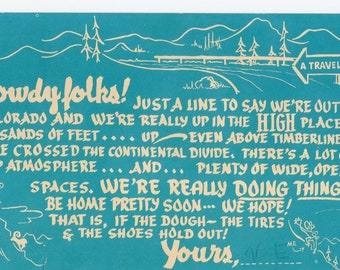 A TRAVEL
owdy folks! JUST A LINE TO SAY WE'RE OUT
OLORADO AND WE'RE REALLY UP IN THE HIGH PLACE
SANDS OF FEET .... UP — EVEN ABOVE TIMBERLINE
E CROSSED THE CONTINENTAL DIVIDE. THERE'S A LOT
P ATMOSPHERE ... AND ... PLENTY OF WIDE, OPE
SPACES. WE'RE REALLY DOING THING
BE HOME PRETTY SOON--- WE HOPE!
THAT IS, IF THE DOUGH— THE TIRES
& THE SHOES HOLD OUT!
Yours,